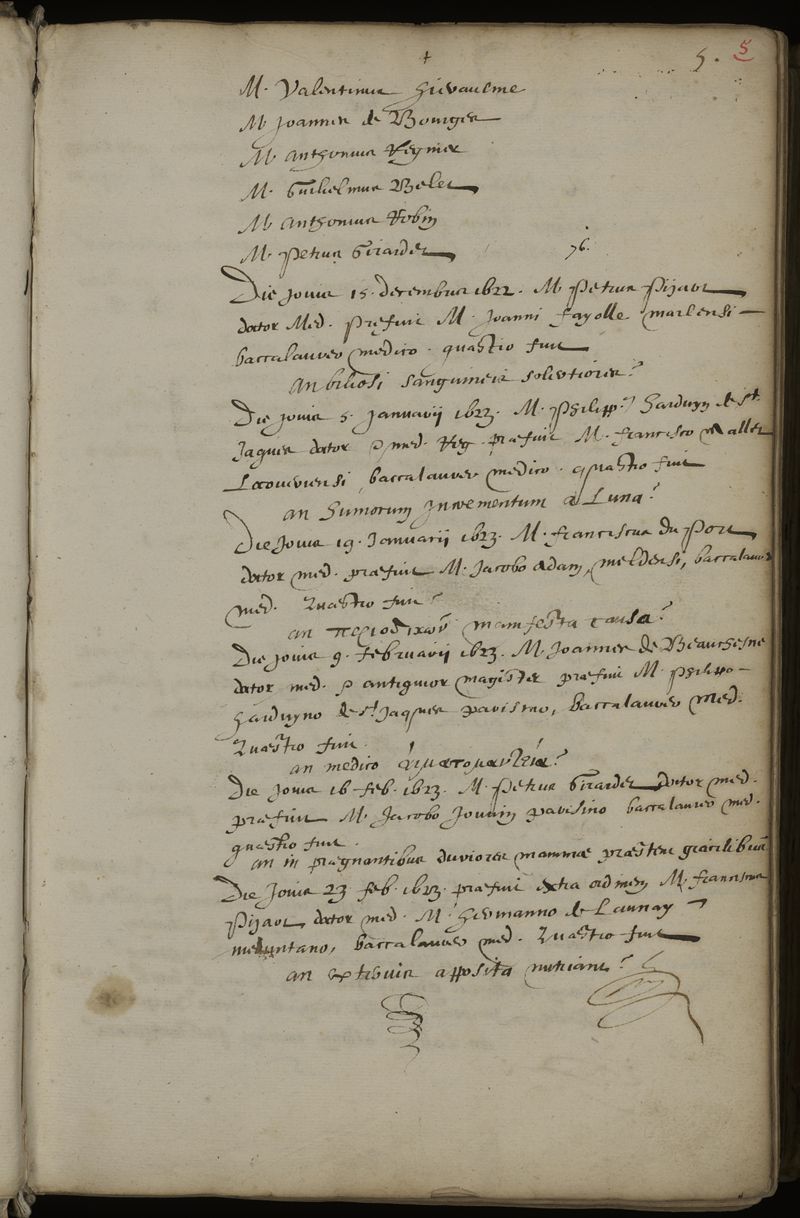 +
5. 5
M. Valentinus Hieraulme
M. Joannes de Bourges
M. Anthonius Regnier
M. Guilielmus Belet
M. Anthonius Robin
M. Petrus Girardet
76.
Die Jovis 15. decembris 1622. M. Petrus Pijart
doctor Med. præfuit M. Joanni Fayolle marlensi
baccalaureo medico. quæstio fuit
An biliosi sanguineis solertiores?
Die Jovis 5. Januarij 1623. M. Philipp. Harduyn de St.
Jaques doctor med. Reg. præfuit M. Francisco Mallet
baccalaureo medico. quæstio fuit
an humorum incrementum a Luna?
Die Jovis 19. Januarij 1623. M. Franciscus du Port
doctor med. præfuit M. Jacobo Adam, meldensi, baccalaureo
med. Quæstio fuit?
an περιοδικῶν manifesta causa?
Die Jovis 9. Februarij 1623. M. Joannes de Beauchesne
doctor med. antiquior magister præfuit M. Philippo
Harduyno de St. Jaques parisino, Baccalaureo Med.
Quæstio fuit.
an medico αἱματομαντεία?
Die Jovis 16 feb. 1623. M. Petrus Girardet doctor med.
præfuit M. Jacobo Jouvin parisino baccalaureo med.
quæstio fuit.
an in prægnantibus duriores mammæ præstent gracilibus
Die Jovis 23 feb. 1623. præfuit extra ordinem M. Franciscus
Pijart, doctor med. M. Hermanno de Launay
baccalaureo med. Quæstio fuit
an exterius apposita nutriant?